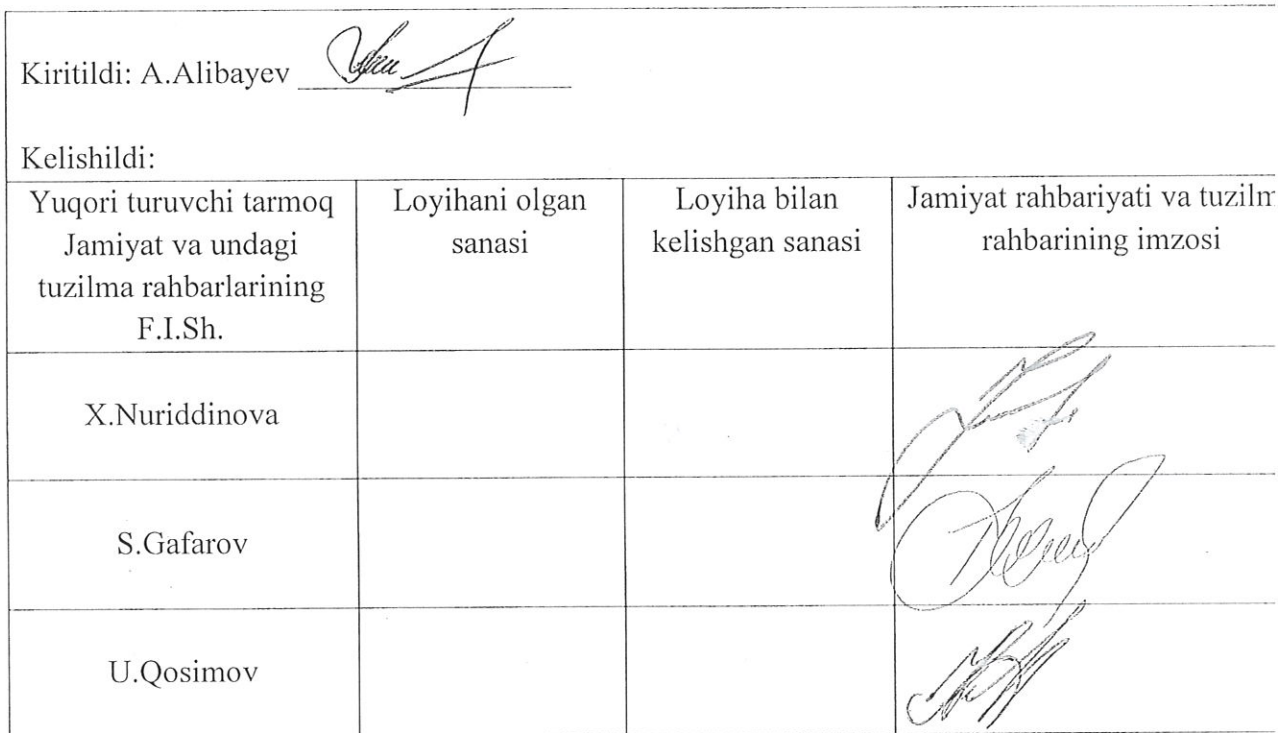 Kiritildi: A.Alibayev
Kelishildi:
Yuqori turuvchi tarmoq
Jamiyat va undagi
tuzilma rahbarlarining
F.I.Sh.
Loyihani olgan
sanasi
Loyiha bilan
kelishgan sanasi
Jamiyat rahbariyati va tuzilm
rahbarining imzosi
X.Nuriddinova
S.Gafarov
U.Qosimov